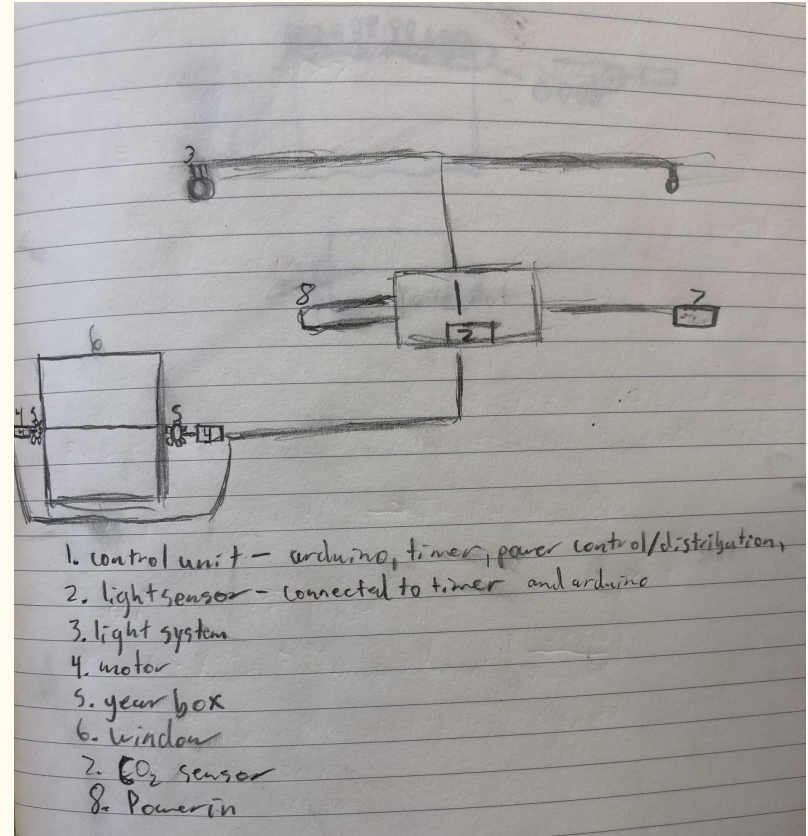 3
8
1
2
7
6
4 5
5
4
1. control unit - arduino, timer, power control/distribution,
2. lightsensor - connected to timer and arduino
3. light system
4. motor
5. year box
6. window
7. CO₂ sensor
8. Powerin